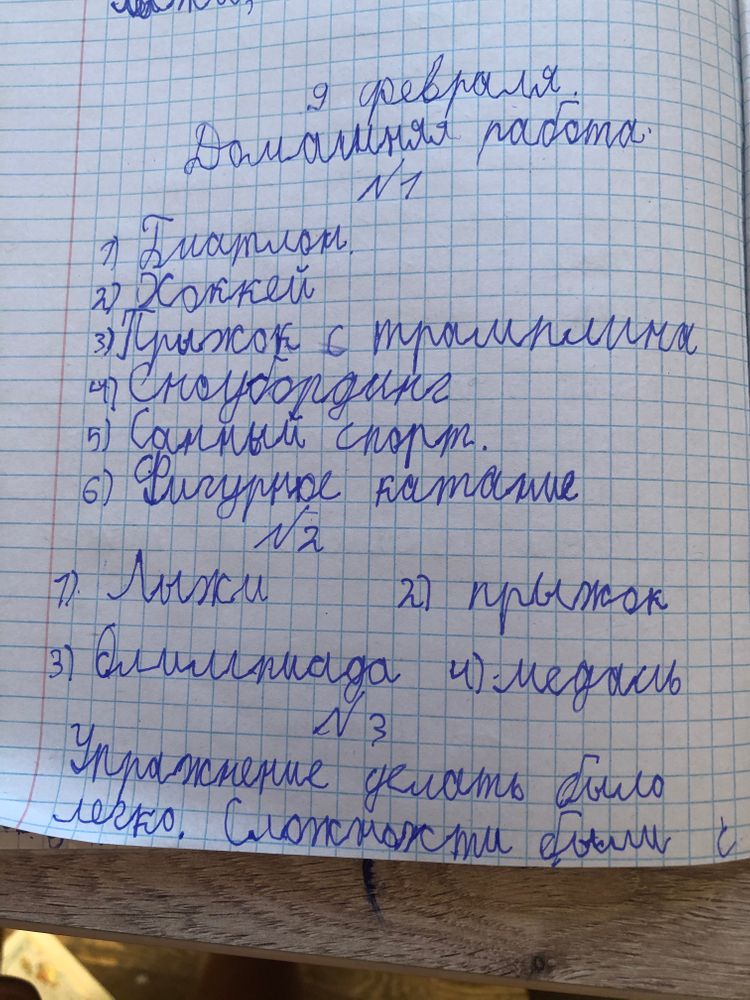 9 февраля.
Домашняя работа.
№1
1) Биатлон.
2) Хоккей
3) Прыжок с трамплина
4) Сноубординг
5) Санный спорт.
6) Фигурное катание
№2
1). Лыжи 2) прыжок
3) Олимпиада 4) медаль
№3
Упражнение делать было
легко. Сложножти были с